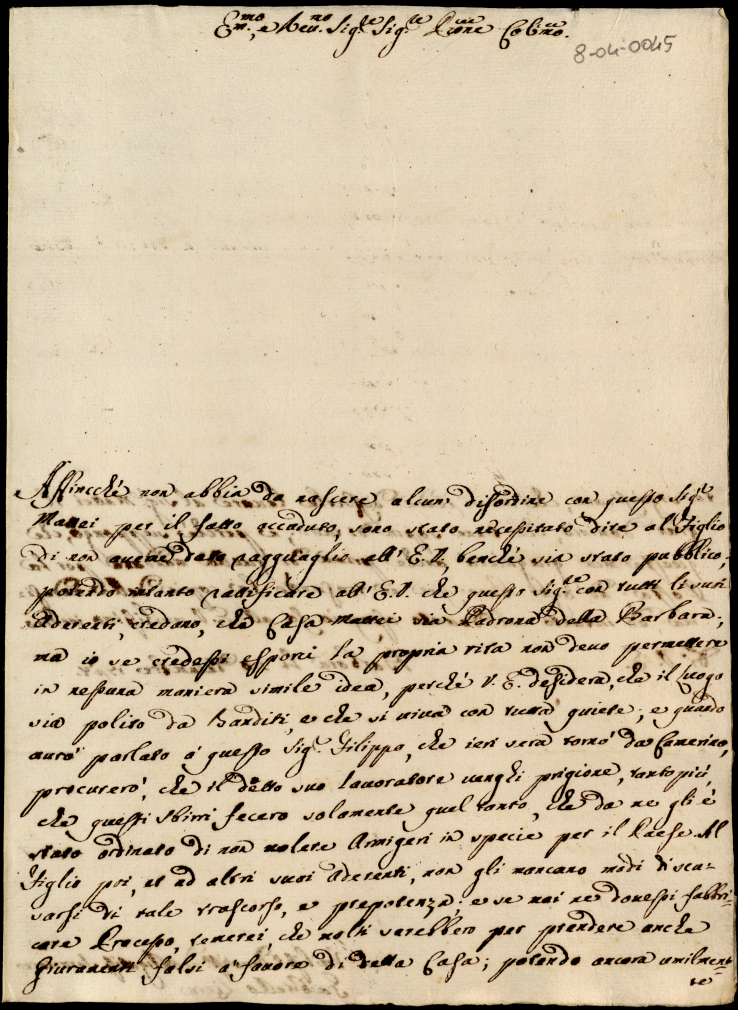 Em.mo, e Reu.mo Sig.re Sig.re Pne Colmo.
8-04-0045
Affincché non abbia da nascere alcun disordine con questo Sig.r
Mattei per il fatto accaduto, sono stato necessitato dire al Figlio
di non auerne dato ragguaglio all' E. V. benché sia stato pubblico,
potendo intanto ratificare all' E. V. che questo Sig.re con tutti li suoi
Aderenti, credano, che Casa Mattei sia Padrona della Barbara;
ma io se credessi esporci la propria vita non deuo permettere
in nessuna maniera simile idea, perché V. E. desidera, che il luogo
sia polito da Banditi, e che si uiua con tutta quiete; e quando
aurò parlato à questo Sig.r Filippo, che ieri sera tornò da Camerino,
procurerò, che il detto suo lauoratore uenghi prigione, tanto più,
che questi sbirri fecero solamente quel tanto, che da me gli è
stato ordinato di non uolere Armigeri in specie per il Paese. Al
Figlio poi, et ad altri suoi Aderenti, non gli mancano modi di scu-
sarsi di tale trascorso, e prepotenza; e se mai ne douessi fabbri=
care Processo, temerei, che molti sarebbero per prendere anche
Giuramenti falsi à fauore di detta Casa; potendo ancora umilmen=
te=